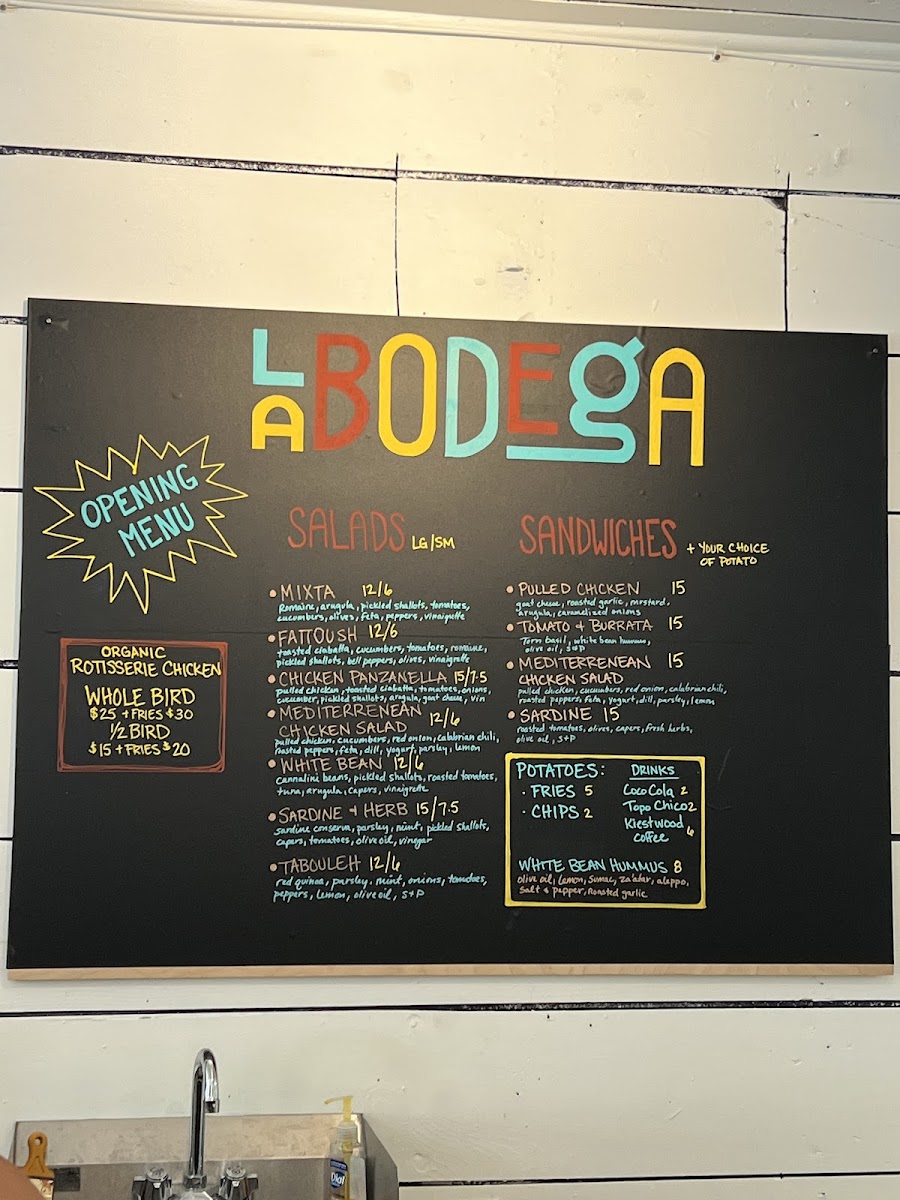 LA BODEgA
OPENING
MENU
ORGANIC
ROTISSERIE CHICKEN
WHOLE BIRD
$25 + FRIES $30
1/2 BIRD
$15 + FRIES $20
SALADS LG/SM
• MIXTA 12/6
Romaine, arugula, pickled shallots, tomatoes,
cucumbers, olives, feta, peppers, vinaigrette
• FATTOUSH 12/6
toasted ciabatta, cucumbers, tomatoes, romaine,
pickled shallots, bell peppers, olives, vinaigrette
• CHICKEN PANZANELLA 15/7.5
pulled chicken, toasted ciabatta, tomatoes, onions,
cucumber, pickled shallots, arugula, goat cheese, vin
• MEDITERRENEAN
CHICKEN SALAD 12/6
pulled chicken, cucumbers, red onion, calabrian chili,
roasted peppers, feta, dill, yogurt, parsley, lemon
• WHITE BEAN 12/6
cannalini beans, pickled shallots, roasted tomatoes,
tuna, arugula, capers, vinaigrette
• SARDINE + HERB 15/7.5
sardine conserva, parsley, mint, pickled shallots,
capers, tomatoes, olive oil, vinegar
• TABOULEH 12/6
red quinoa, parsley, mint, onions, tomatoes,
peppers, lemon, olive oil, S+P
SANDWICHES + YOUR CHOICE
OF POTATO
• PULLED CHICKEN 15
goat cheese, roasted garlic, mustard,
arugula, caramelized onions
• TOMATO + BURRATA 15
Torn basil, white bean hummus,
olive oil, S+P
• MEDITERRENEAN 15
CHICKEN SALAD
pulled chicken, cucumbers, red onion, calabrian chili,
roasted peppers, feta, yogurt, dill, parsley, lemon
• SARDINE 15
roasted tomatoes, olives, capers, fresh herbs,
olive oil, S+P
POTATOES:
· FRIES 5
· CHIPS 2
DRINKS
Coco Cola 2
Topo Chico 2
Kiestwood
coffee 6
WHITE BEAN HUMMUS 8
olive oil, Lemon, Sumac, Za'atar, aleppo,
Salt + pepper, Roasted garlic
Dial